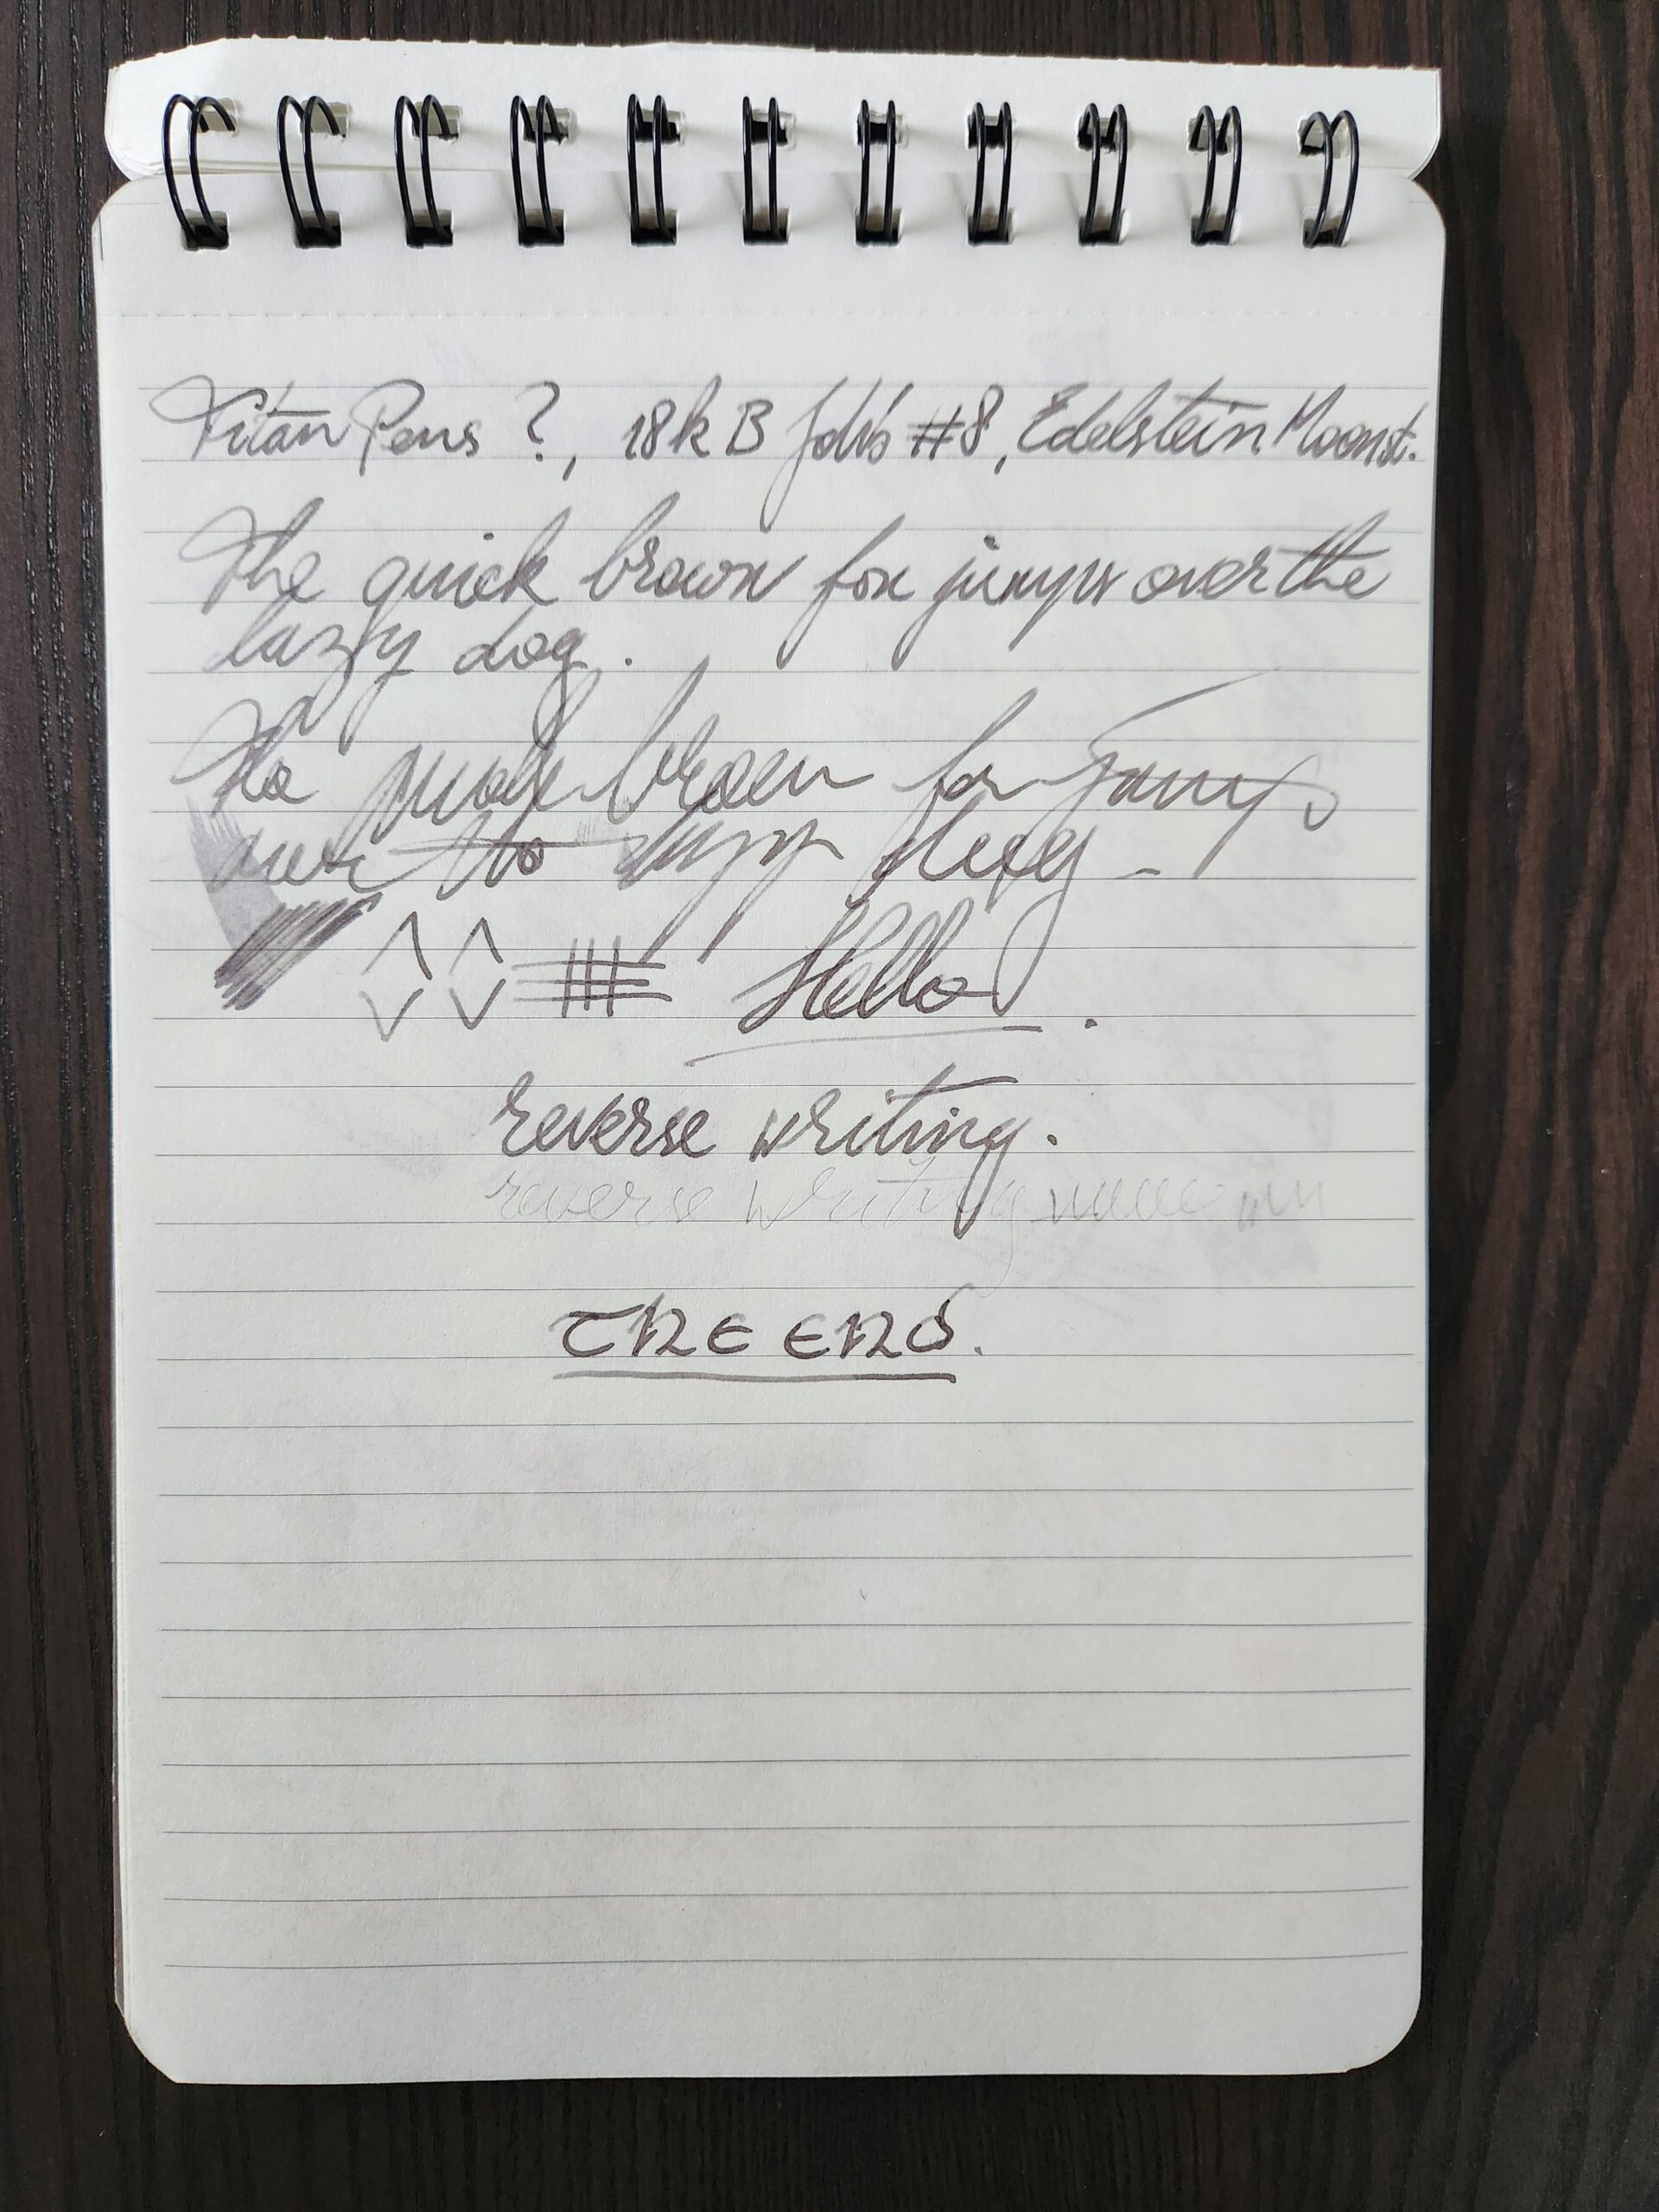 Titan Pens ?, 18k B Jowo #8, Edelstein Moonst.
The quick brown fox jumps over the
lazy dog.
The quick brown fox jumps
over the lazy dog -
Hello.
reverse writing.
reverse writing
THE END.